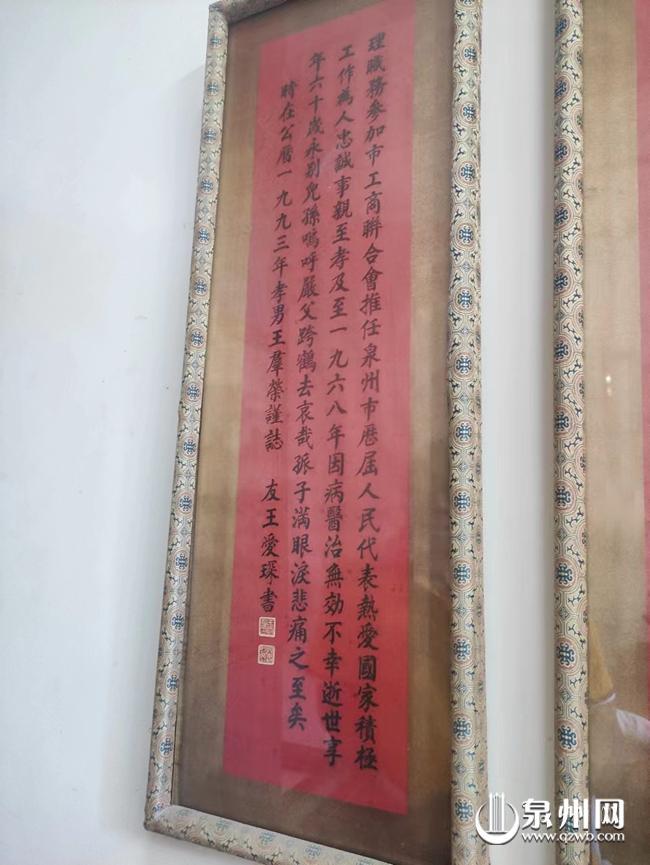 理職務參加市工商聯合會推任泉州市歷屆人民代表熱愛國家積極
工作為人忠誠事親至孝及至一九六八年因病醫治無効不幸逝世享
年六十歲永別兒孫嗚呼嚴父跨鶴去哀哉孤子滿眼淚悲痛之至矣
時在公曆一九九三年孝男王羣榮謹誌 友王愛琛書
泉州网
www.qzwb.com